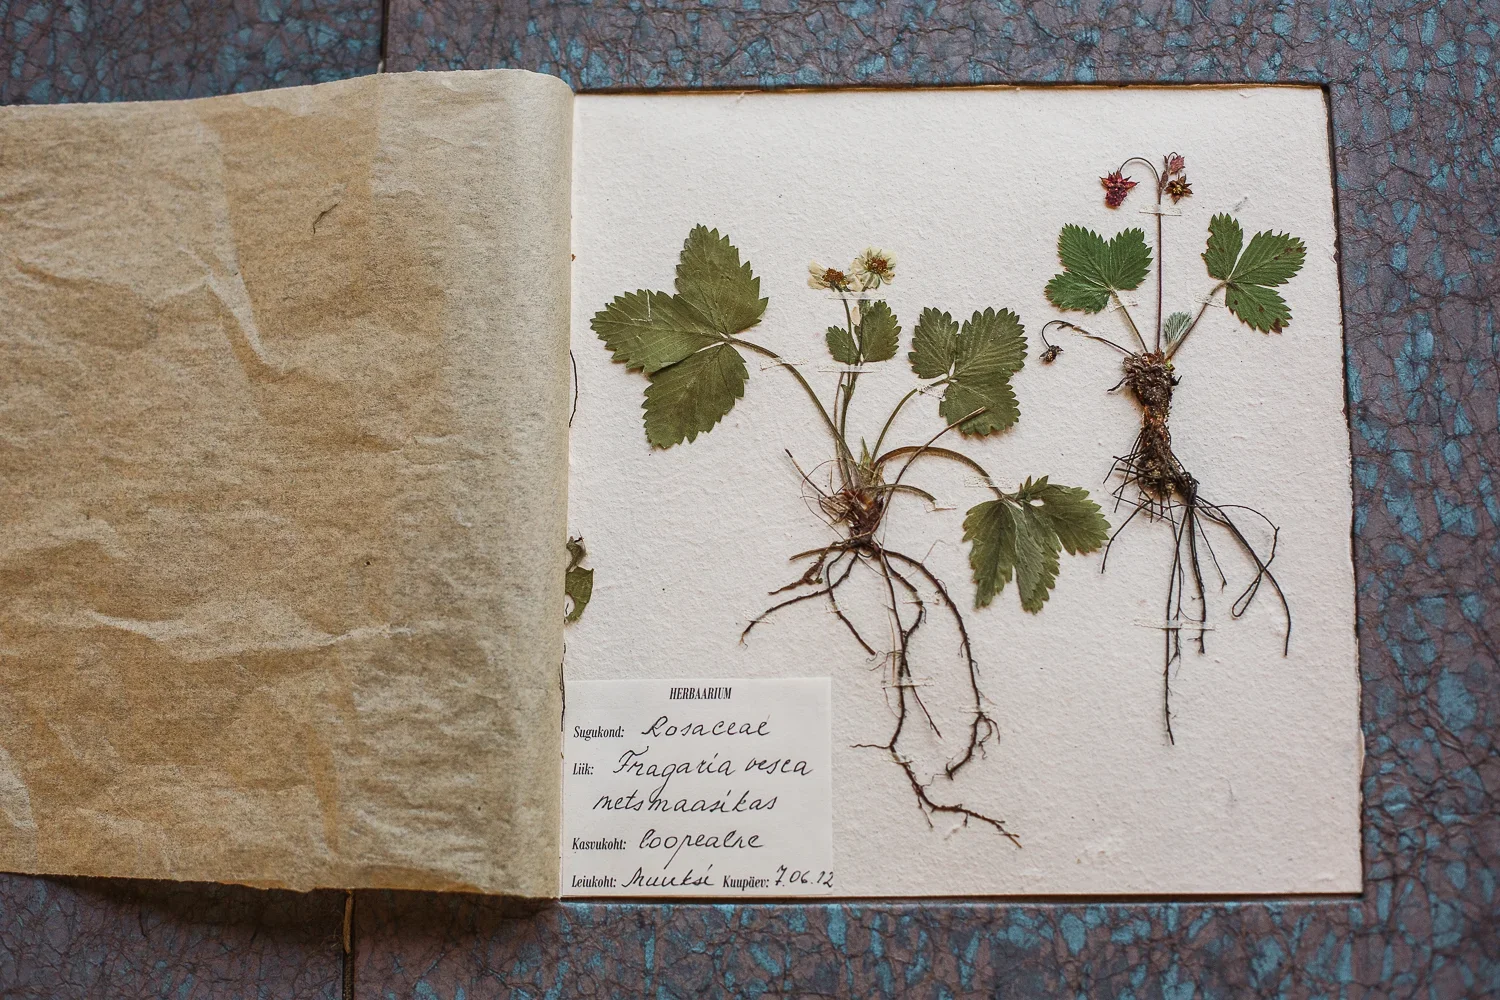 HERBAARIUM
Sugukond: Rosaceae
Liik: Fragaria vesca
metsmaasikas
Kasvukoht: loopealne
Leiukoht: Muuksi Kuupäev: 7.06.12